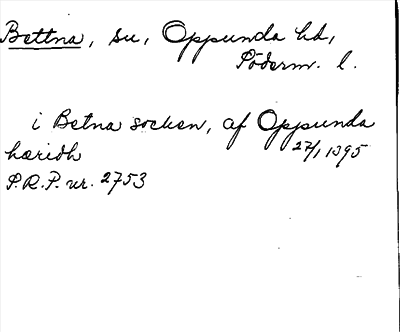 Bettna, sn, Oppunda hd,
Söderm. l.
i Betna socken, af Oppunda
hæridh 27/1 1395
S.R.P. nr. 2753